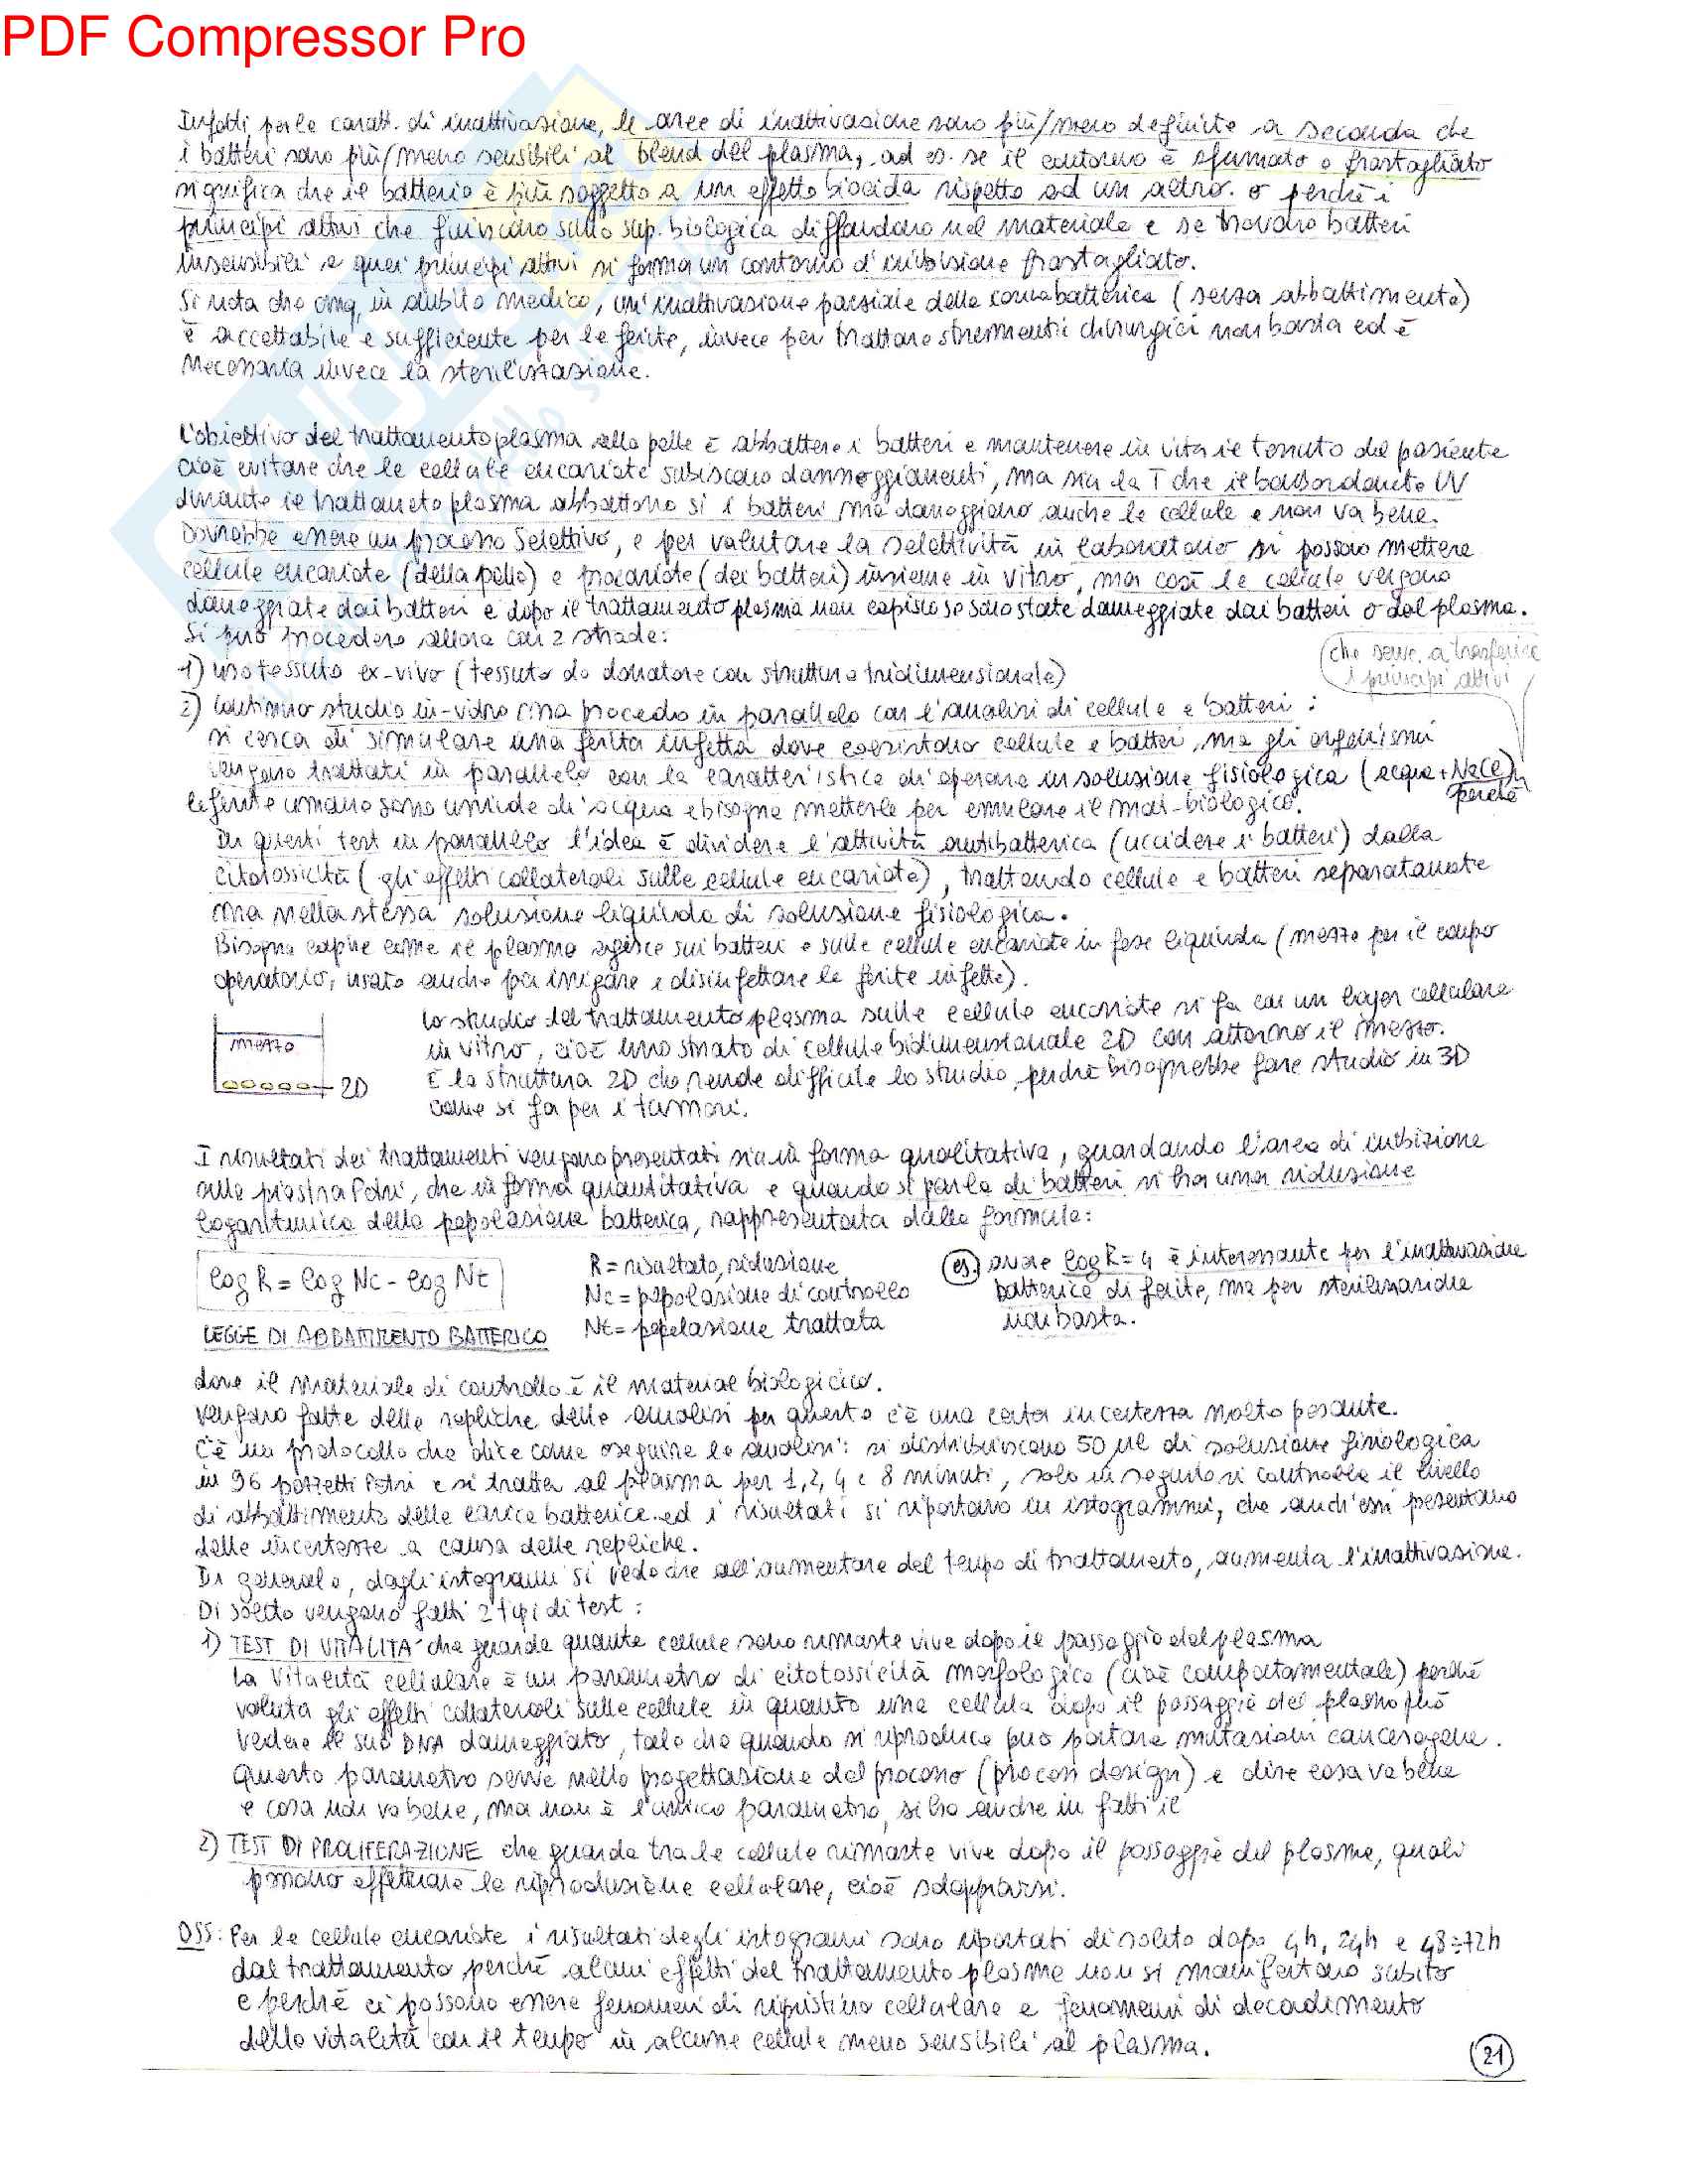 PDF Compressor Pro
Infatti, per le caratt. di inattivazione, le aree di inattivazione sono più/meno definite a seconda che
i batteri sono più/meno sensibili al blend del plasma, ad es. se il contorno è sfumato o frastagliato
significa che il batterio è più soggetto a un effetto biocida rispetto ad un altro. o perché i
principi attivi che finiscono sulla sup. biologica diffondono nel materiale e se trovano batteri
insensibili a quei principi attivi si forma un contorno d'inibizione frastagliato.
Si nota che cmq, in ambito medico, un'inattivazione parziale della carica batterica (senza abbattimento)
è accettabile e sufficiente per le ferite, invece per trattare strumenti chirurgici non basta ed è
necessaria invece la sterilizzazione.
L'obiettivo del trattamento plasma alla pelle è abbattere i batteri e mantenere in vita il tessuto del paziente
cioè evitare che le cellule eucariote subiscano danneggiamenti, ma sia la T che il bombardamento UV
durante il trattamento plasma abbattono sì i batteri ma danneggiano anche le cellule e non va bene.
Dovrebbe essere un processo selettivo, e per valutare la selettività in laboratorio si possono mettere
cellule eucariote (della pelle) e procariote (dei batteri) insieme in vitro, ma così le cellule vengono
danneggiate dai batteri e dopo il trattamento plasma non capisco se sono state danneggiate dai batteri o dal plasma.
Si può procedere allora con 2 strade:
1) uso tessuto ex-vivo (tessuto da donatore con struttura tridimensionale)
(che serve a trasferire
i principi attivi
2) continuo studio in-vitro ma procedo in parallelo con l'analisi di cellule e batteri:
si cerca di simulare una ferita infetta dove coesistono cellule e batteri, ma gli organismi
vengono trattati in parallelo con la caratteristica di operare in soluzione fisiologica (acqua + NaCl)
perché
le ferite umane sono umide di acqua e bisogna metterle per emulare il mat. biologico.
In questi test in parallelo l'idea è dividere l'attività antibatterica (uccidere i batteri) dalla
citotossicità (gli effetti collaterali sulle cellule eucariote), trattando cellule e batteri separatamente
ma nella stessa soluzione liquida di soluzione fisiologica.
Bisogna capire come il plasma agisce sui batteri e sulle cellule eucariote in fase liquida (mezzo per il campo
operatorio, usato anche per irrigare e disinfettare le ferite infette).
mezzo
2D
Lo studio del trattamento plasma sulle cellule eucariote si fa con un layer cellulare
in vitro, cioè uno strato di cellule bidimensionale 2D con attorno il mezzo.
È la struttura 2D che rende difficile lo studio, perché bisognerebbe fare studio in 3D
come si fa per i tumori.
I risultati dei trattamenti vengono presentati sia in forma qualitativa, guardando l'area di inibizione
alla piastra Petri, che in forma quantitativa e quando si parla di batteri si ha una riduzione
logaritmica della popolazione batterica, rappresentata dalla formula:
log R = log Nc - log Nt
LEGGE DI ABBATTIMENTO BATTERICO
R = risultato, riduzione
Nc = popolazione di controllo
Nt = popolazione trattata
es.) avere log R = 4 è interessante per l'inattivazione
batterica di ferite, ma per sterilizzazione
non basta.
dove il materiale di controllo è il materiale biologico.
Vengono fatte delle repliche delle analisi per questo c'è una certa incertezza molto pesante.
C'è un protocollo che dice come eseguire le analisi: si distribuiscono 50 µl di soluzione fisiologica
in 96 pozzetti Petri e si tratta al plasma per 1, 2, 4 e 8 minuti, solo in seguito si controlla il livello
di abbattimento delle carica batterice ed i risultati si riportano in istogrammi, che anch'essi presentano
delle incertezze a causa delle repliche.
In generale, dagli istogrammi si vede che all'aumentare del tempo di trattamento, aumenta l'inattivazione.
Di solito vengono fatti 2 tipi di test:
1) TEST DI VITALITÀ che guarda quante cellule sono rimaste vive dopo il passaggio del plasma
La vitalità cellulare è un parametro di citotossicità morfologico (cioè comportamentale) perché
valuta gli effetti collaterali sulle cellule in quanto una cellula dopo il passaggio del plasma può
vedere il suo DNA danneggiato, tale che quando si riproduce può portare mutazioni cancerogene.
Questo parametro serve nella progettazione del processo (process design) e dire cosa va bene
e cosa non va bene, ma non è l'unico parametro, si ha anche in fatti il
2) TEST DI PROLIFERAZIONE che guarda tra le cellule rimaste vive dopo il passaggio del plasma, quali
possono effettuare la riproduzione cellulare, cioè sdoppiarsi.
OSS: Per le cellule eucariote i risultati degli istogrammi sono riportati di solito dopo 4h, 24h e 48÷72h
dal trattamento perché alcuni effetti del trattamento plasma non si manifestano subito
e perché ci possono essere fenomeni di ripristino cellulare e fenomeni di decadimento
della vitalità con il tempo in alcune cellule meno sensibili al plasma.
21